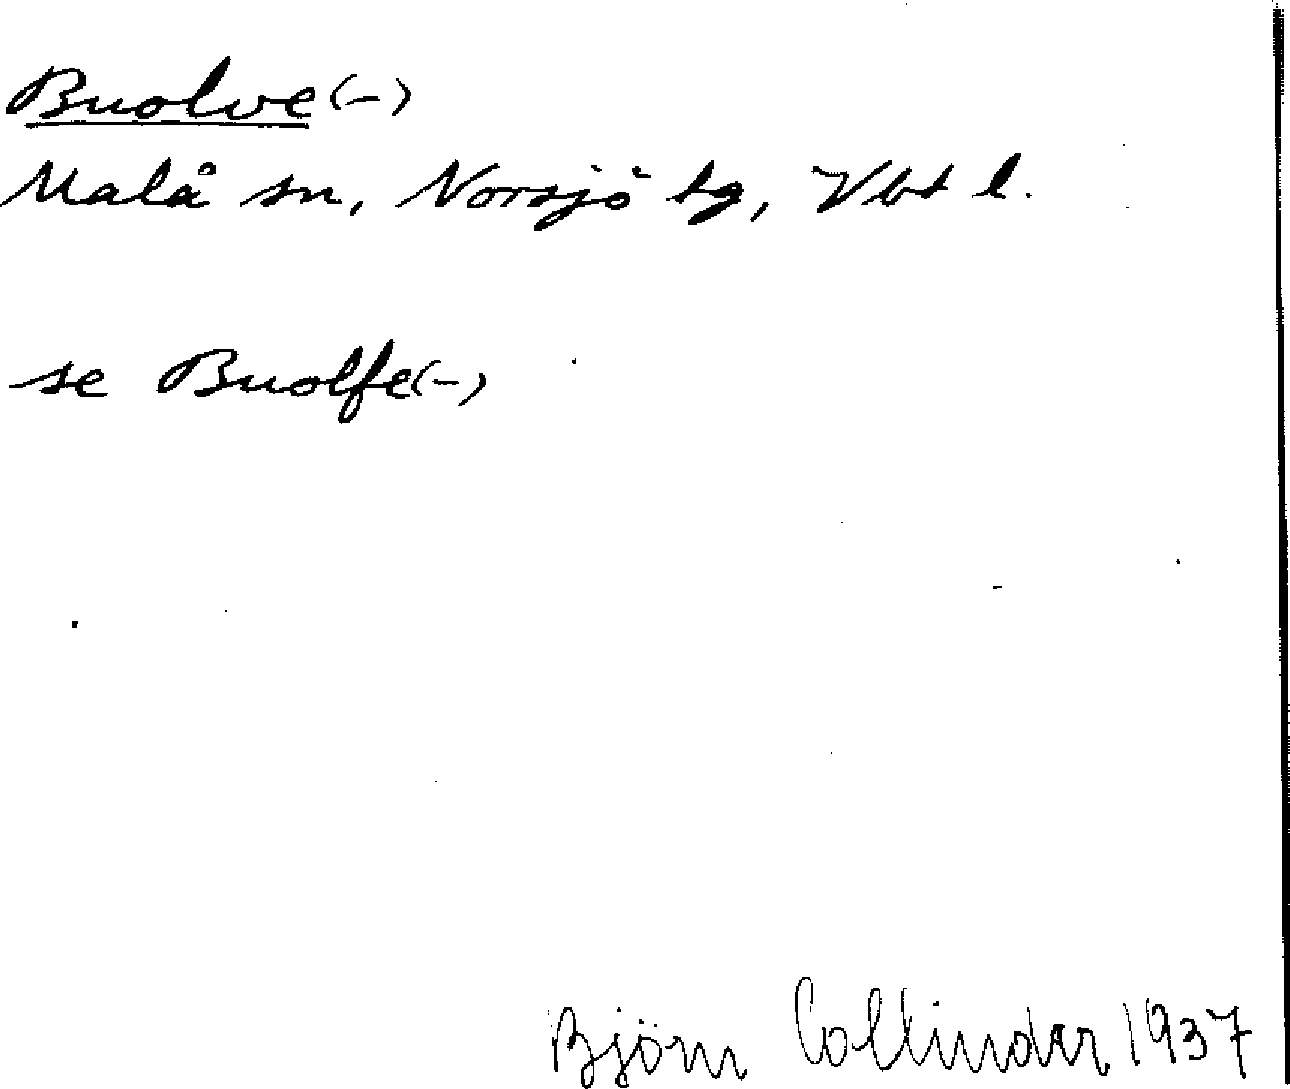 Buolve(-)
Malå sn, Norsjö tg, Vbt l.
se Buolfe(-)
Björn Collinder 1937